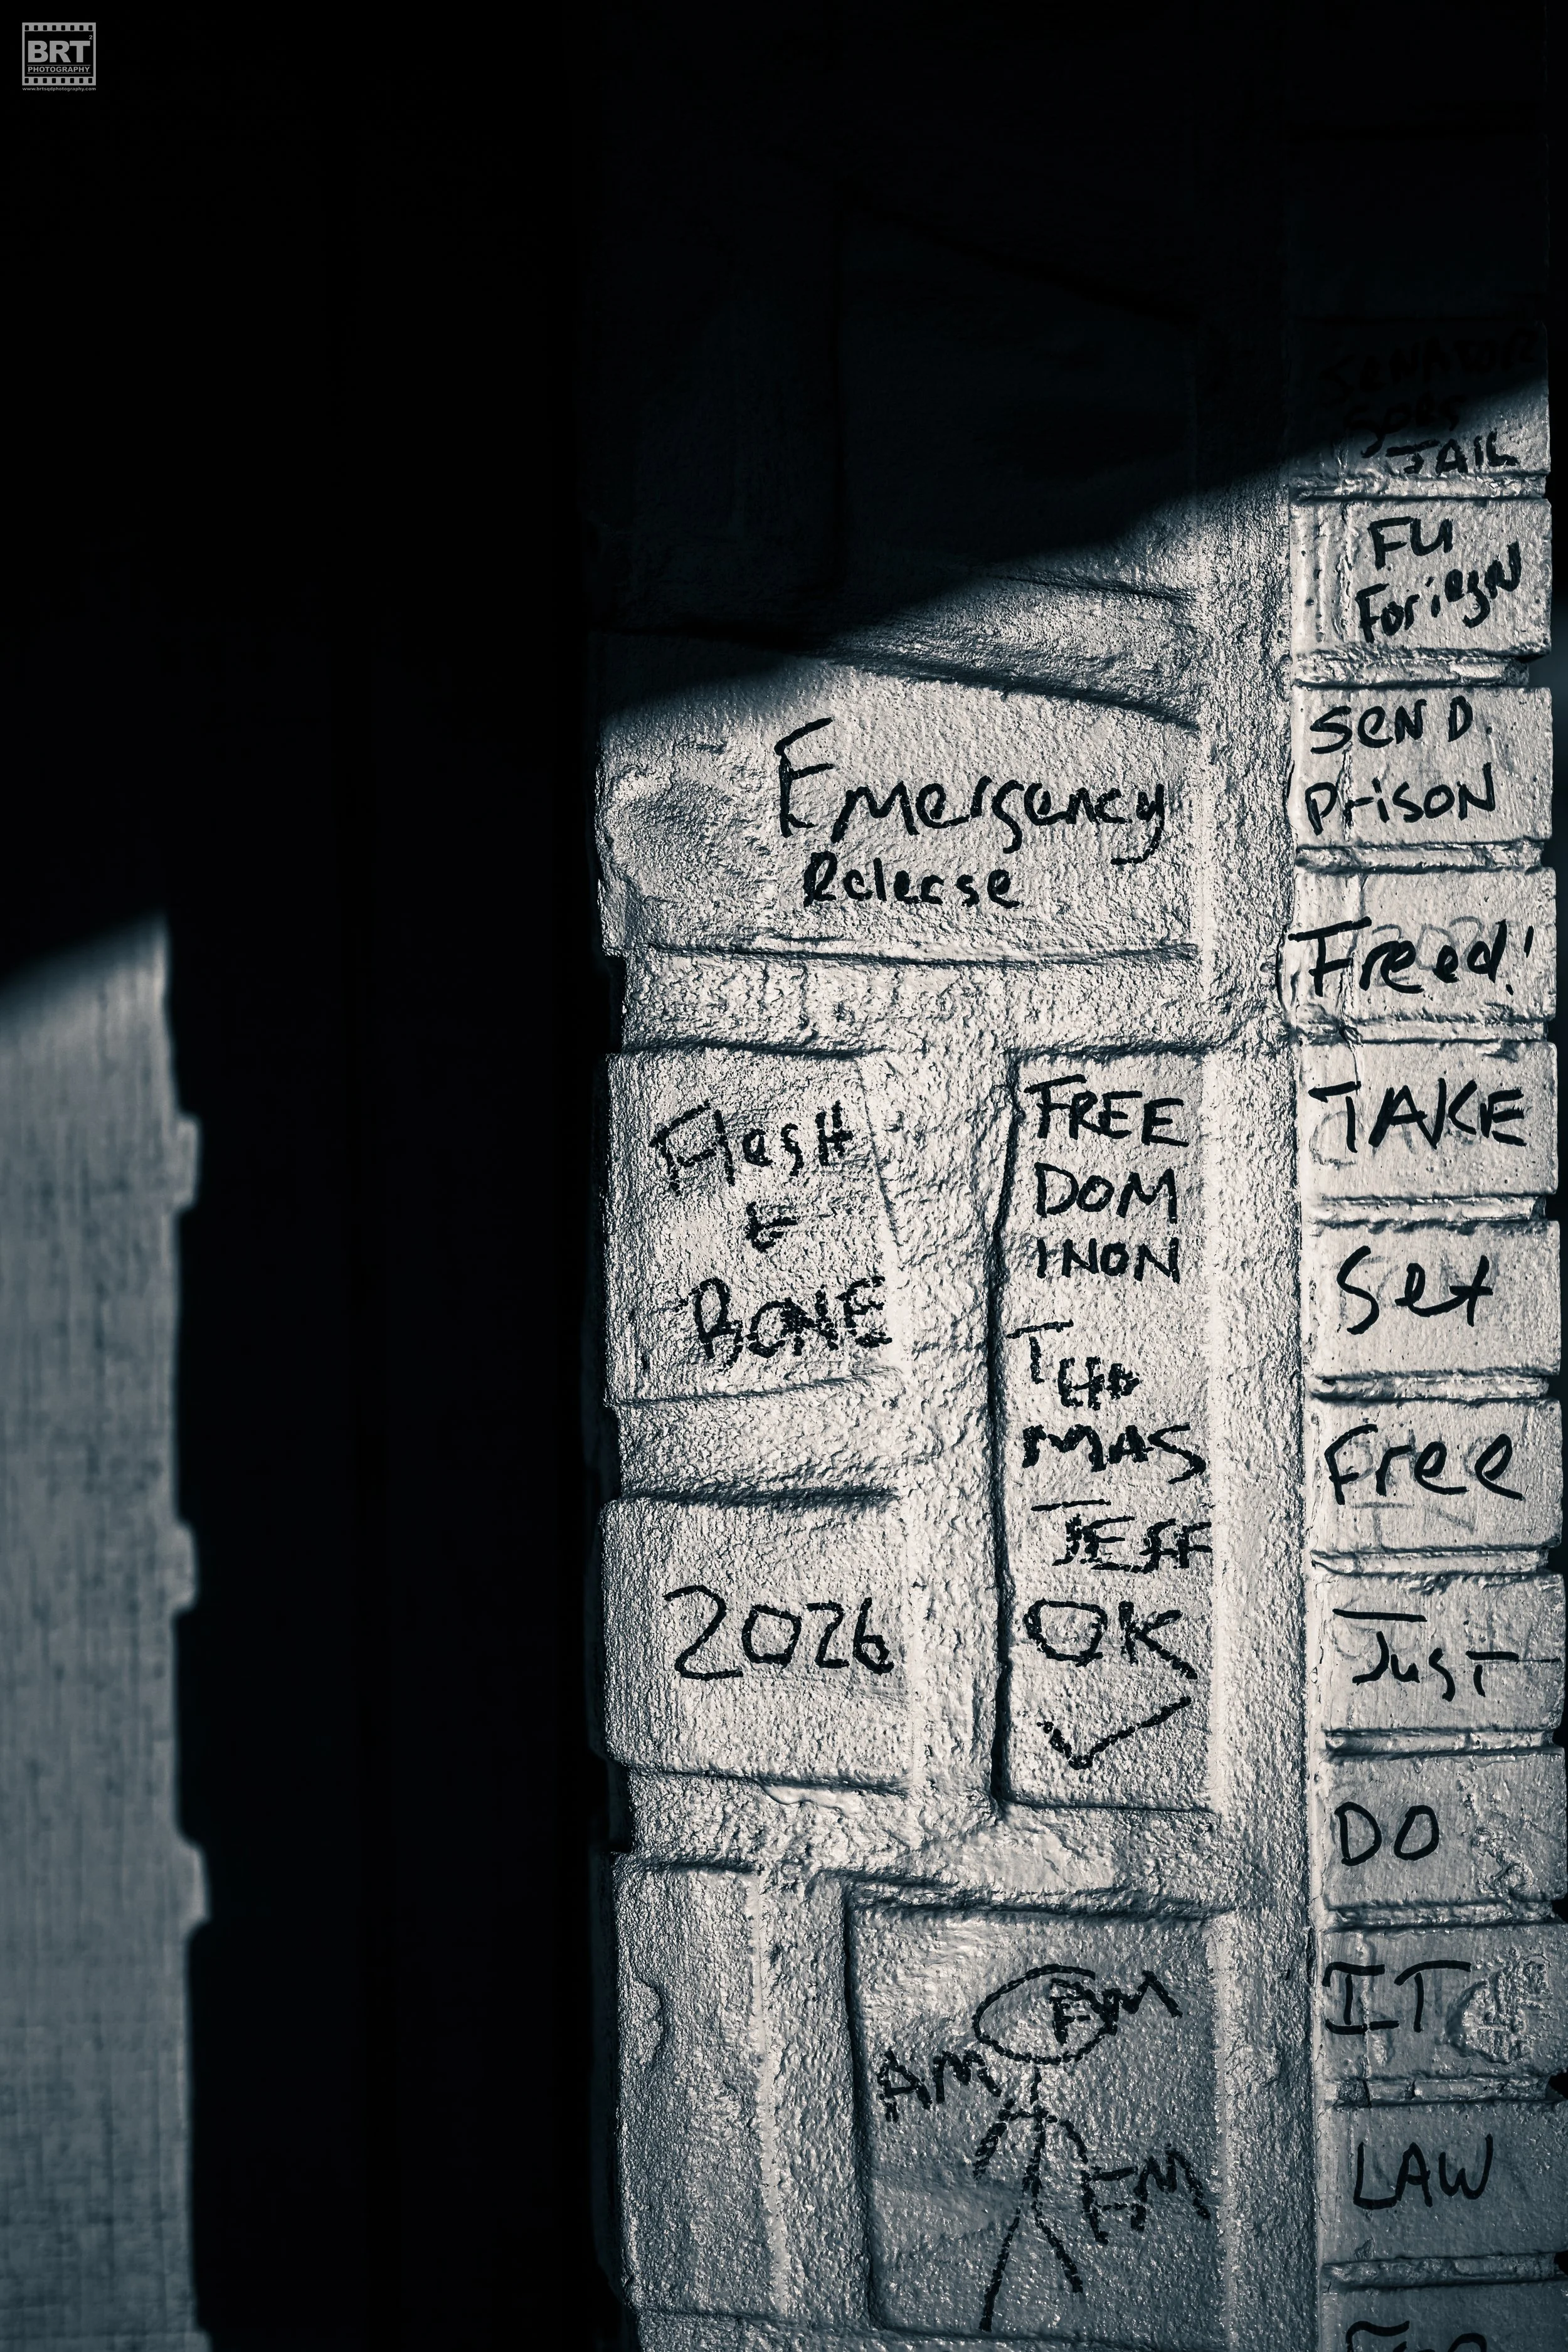 BRT2
PHOTOGRAPHY
www.brtsqdphotography.com
SENATOR
GOES
JAIL
FU
Foriegn
SeND
PrisoN
Freed!
TAKE
Set
Free
JusT
DO
IT
LAW
Emergency
Release
Flesh
&
BONE
2026
FREE
DOM
INON
THO
MAS
JEFF
OK
✓
PM
AM
FM